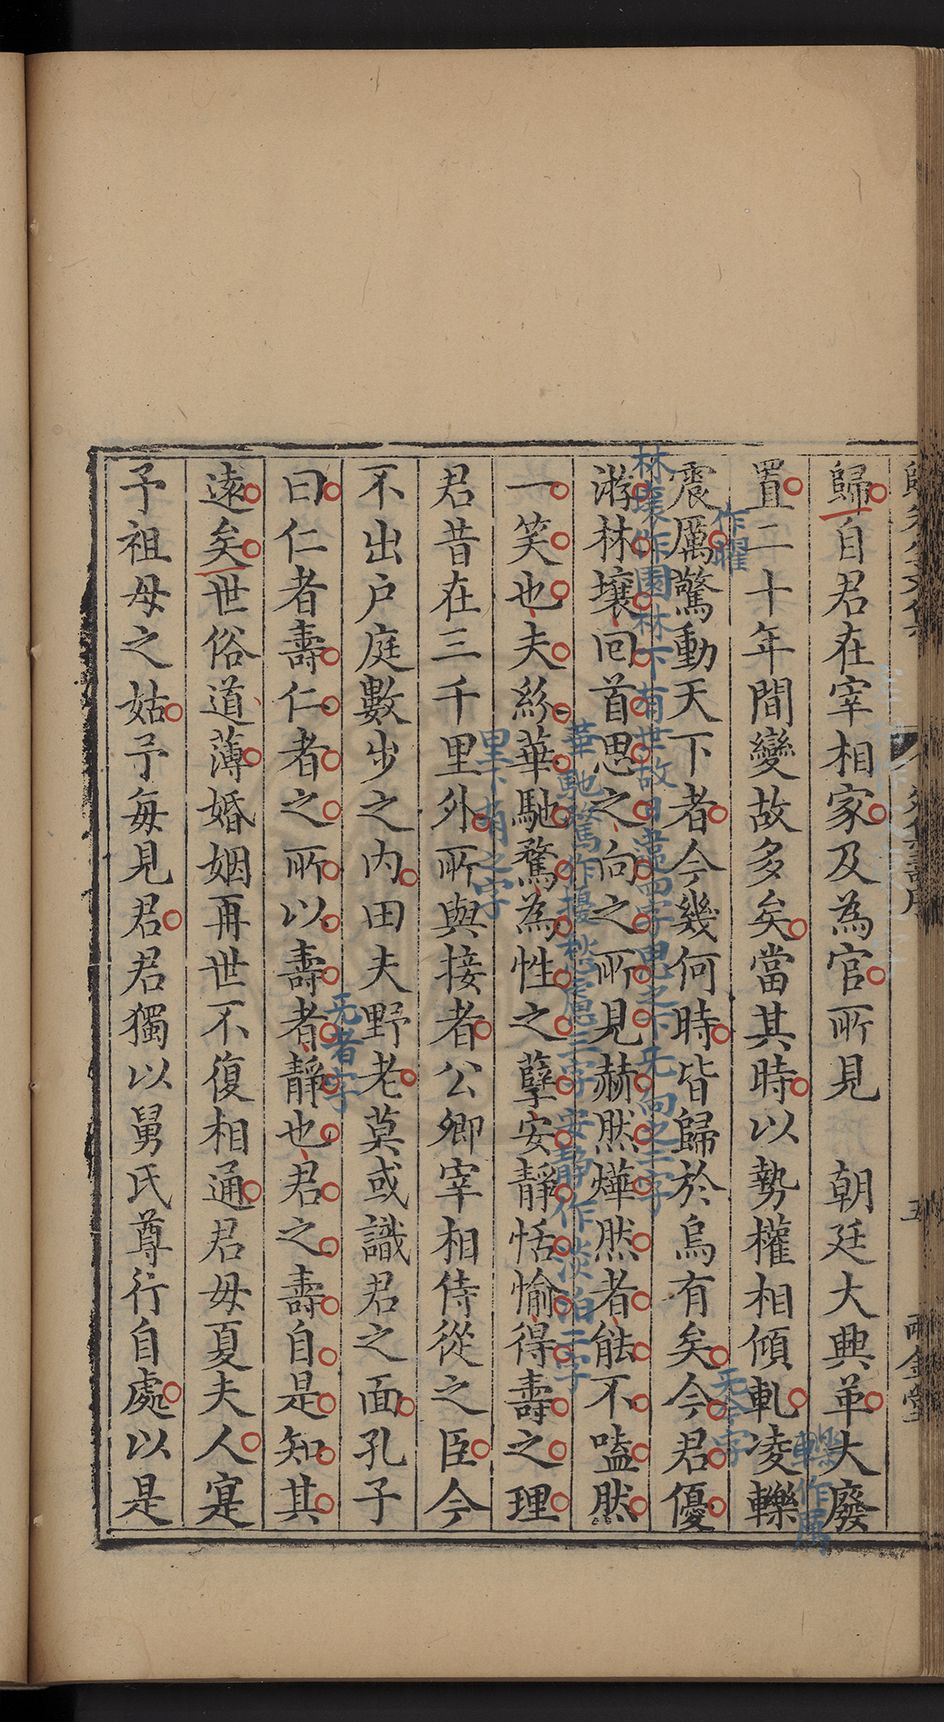 歸自君在宰相家及為官所見　朝廷大典革大廢
置二十年間變故多矣當其時以勢權相傾軋凌轢
轢作厲
震厲驚動天下者今幾何時皆歸於烏有矣今君優
作曜
无今字
游林壤回首思之向之所見赫然燁然者能不嗑然
林壤作園林下有世故日蕓四字思之下无向之二字
一笑也夫紛華馳騖為性之孽安靜恬愉得壽之理
華馳騖作擾愁慮三字安靜作淡泊二字
君昔在三千里外所與接者公卿宰相侍從之臣今
里下有之字
不出戶庭數步之內田夫野老莫或識君之面孔子
曰仁者壽仁者之所以壽者靜也君之壽自是知其
无者字
遠矣世俗道薄婚姻再世不復相通君母夏夫人寔
予祖母之姑予每見君君獨以舅氏尊行自處以是